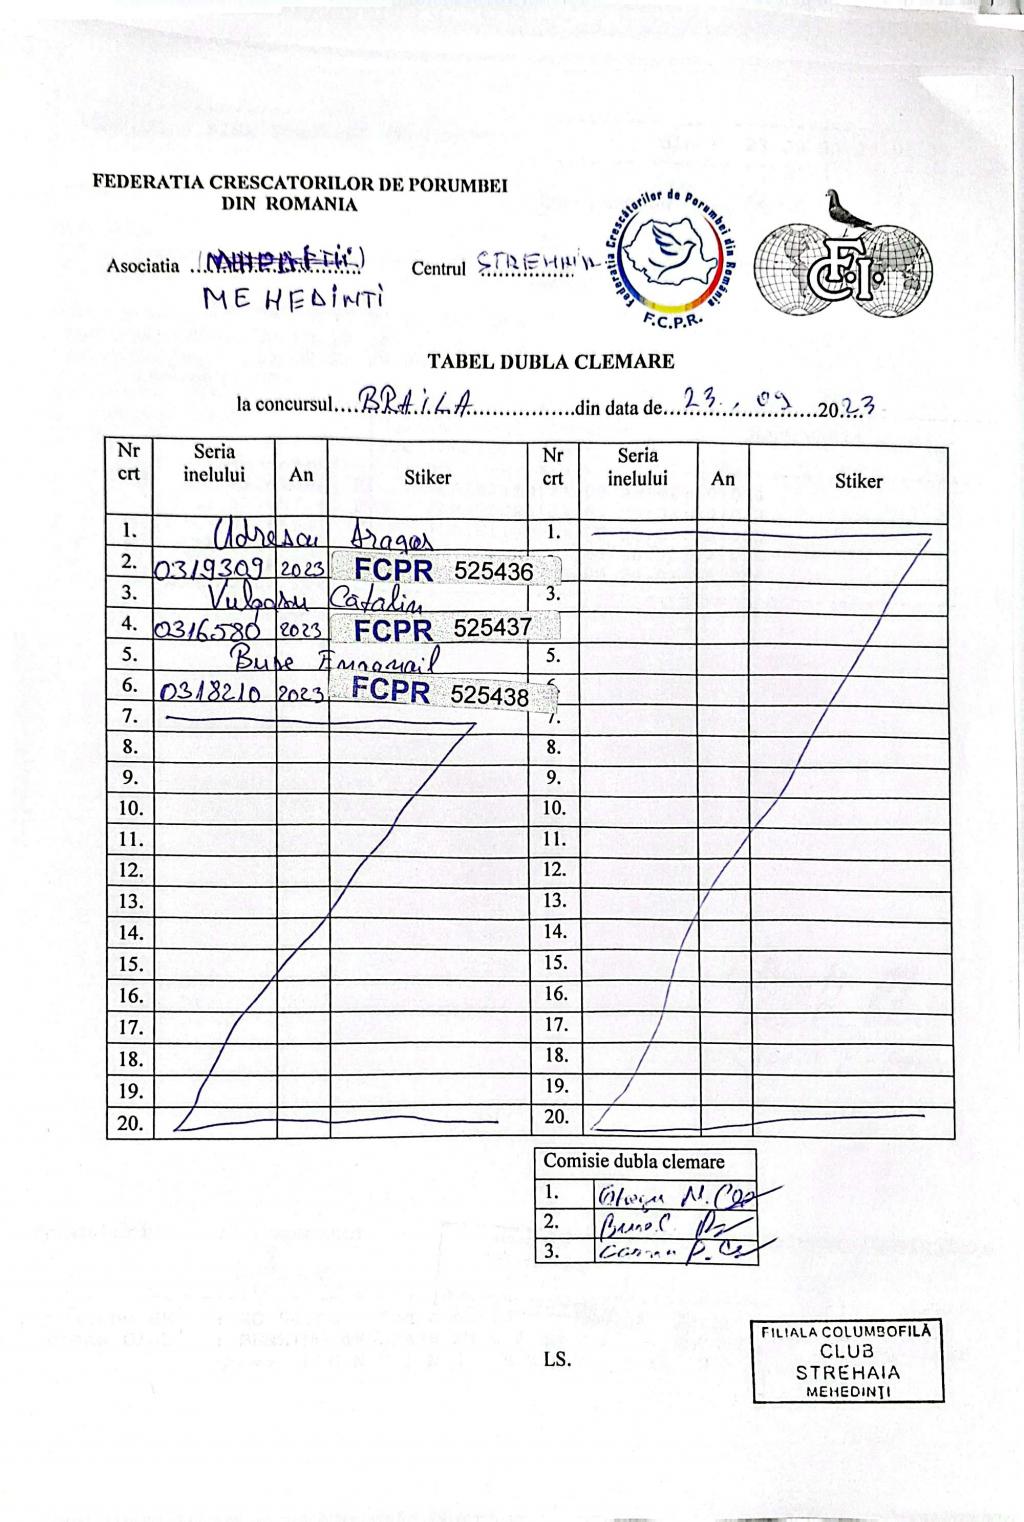 FEDERATIA CRESCATORILOR DE PORUMBEI
DIN ROMANIA
Asociatia
MEHEDINTI
Centrul STREHAIA
Federatia Crescătorilor de Porumbei din România
F.C.P.R.
F.C.I.
TABEL DUBLA CLEMARE
la concursul....BRAILA....din data de....23.09....2023
Nr crt Seria inelului An Stiker Nr crt Seria inelului An Stiker
1. Udrescu Dragos 1.
2. 0319309 2023 FCPR 525436
3. Catalin 3.
4. 0316580 2023 FCPR 525437
5. Buse Emanail 5.
6. 0318210 2023 FCPR 525438
7. 7.
8. 8.
9. 9.
10. 10.
11. 11.
12. 12.
13. 13.
14. 14.
15. 15.
16. 16.
17. 17.
18. 18.
19. 19.
20. 20.
Comisie dubla clemare
1.
2.
3.
LS.
FILIALA COLUMBOFILĂ
CLUB
STREHAIA
MEHEDINȚI